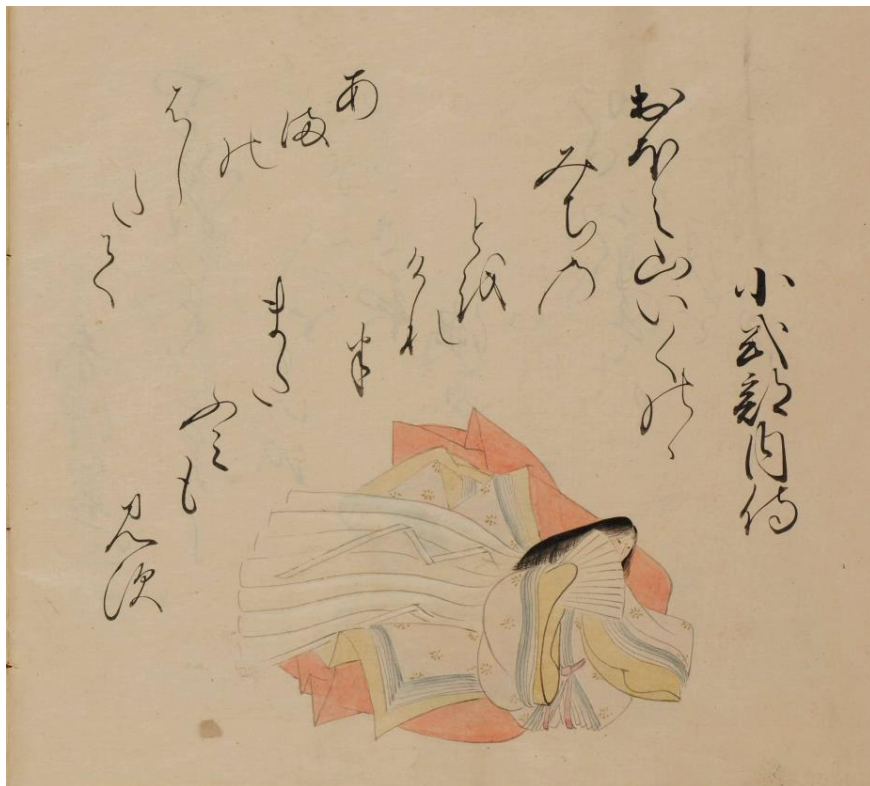 小式部内侍
おほえ山いくのゝ
みちの
とを
けれ
は
また
ふみも
見す
あ
ま
の
はし
た
て